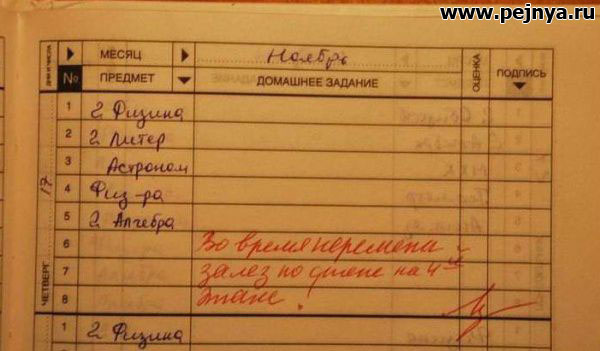 www.pejnya.ru
ДНИ И ЧИСЛА МЕСЯЦ Ноябрь ОЦЕНКА ПОДПИСЬ
№ ПРЕДМЕТ ДОМАШНЕЕ ЗАДАНИЕ
ЧЕТВЕРГ 17
1 2 Физика
2 2 Литер
3 Астроном
4 Физ-ра
5 2 Алгебра
6 Во время перемена
7 залез по стене на 4ый
8 этаж!
1 2 Физика
2